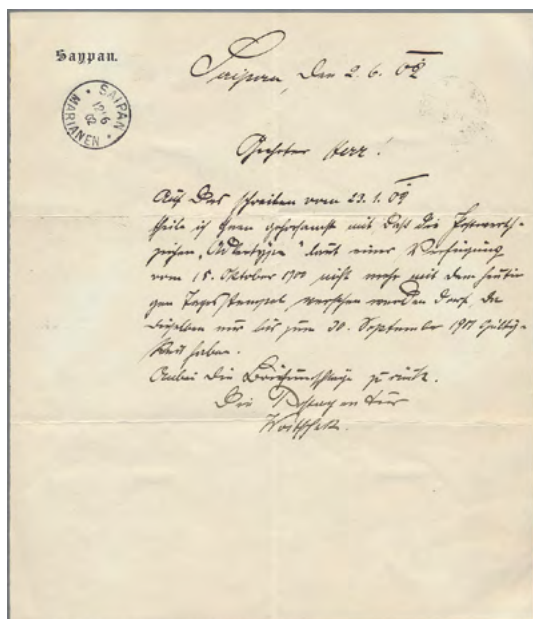 Saypan.
SAIPAN
12/6
02
MARIANEN
Saipan, den 2.6.02
Geehrter Herr!
Auf das Schreiben vom 23.1.02
theile ich Ihnen gehorsamst mit daß die Postwerth-
zeichen „Adlertypen“ laut einer Verfügung
vom 15. Oktober 1900 nicht mehr mit dem heuti-
gen Tagesstempel versehen werden darf, da
dieselben nur bis zum 30. September 1901 Gültig-
keit haben.
Anbei die zurück.
Die Postagentur